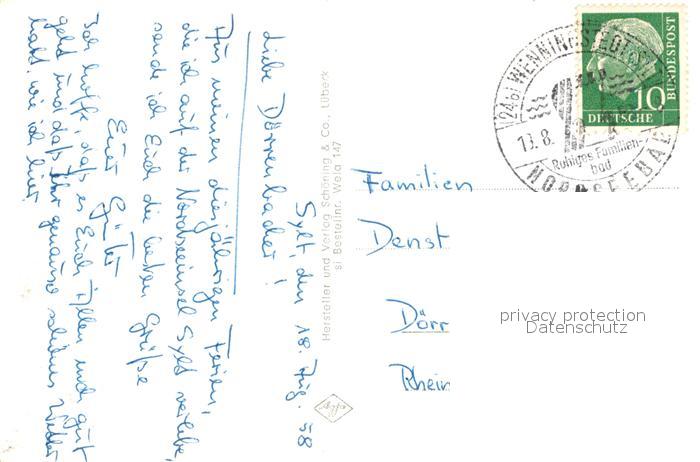 Sylt, den 18. Aug. 58
Liebe Dörrenbacher!
Aus meinen diesjährigen Ferien,
die ich auf der Nordseeinsel Sylt verlebe,
sende ich Euch die besten Grüße
Euer Günter
Ich hoffe, daß es Euch Allen auch gut
geht und daß Ihr genauso schönes Wetter
habt, wie ich hier.
Hersteller und Verlag Schöning & Co., Lübeck
si Bestellnr. Weld 147
Familien
Denst
Dörr
Rhein
privacy protection
Datenschutz
(24b) WENNINGSTEDT
19.8.
Ruhiges Familien-
bad
NORDSEEBAD
DEUTSCHE
BUNDESPOST
10